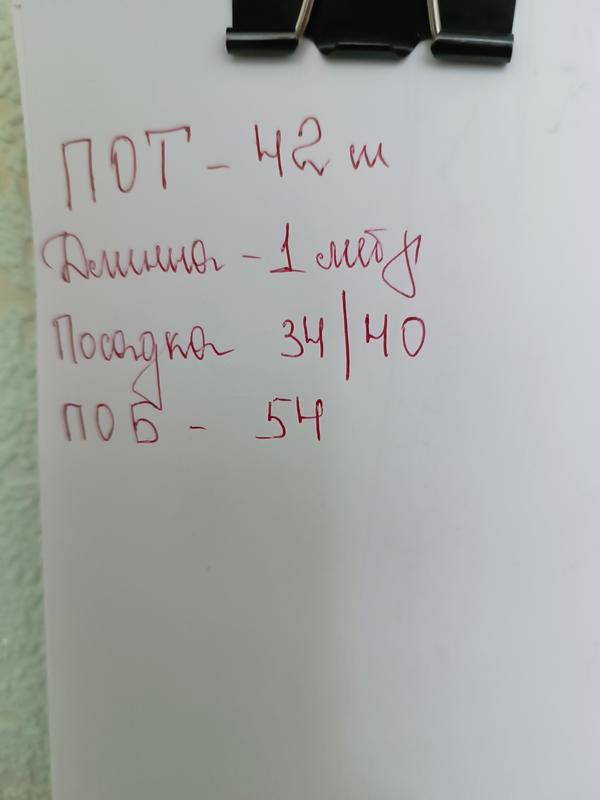 ПОТ - 42 см
Длинна - 1 метр
Посадка 34|40
ПОБ - 54